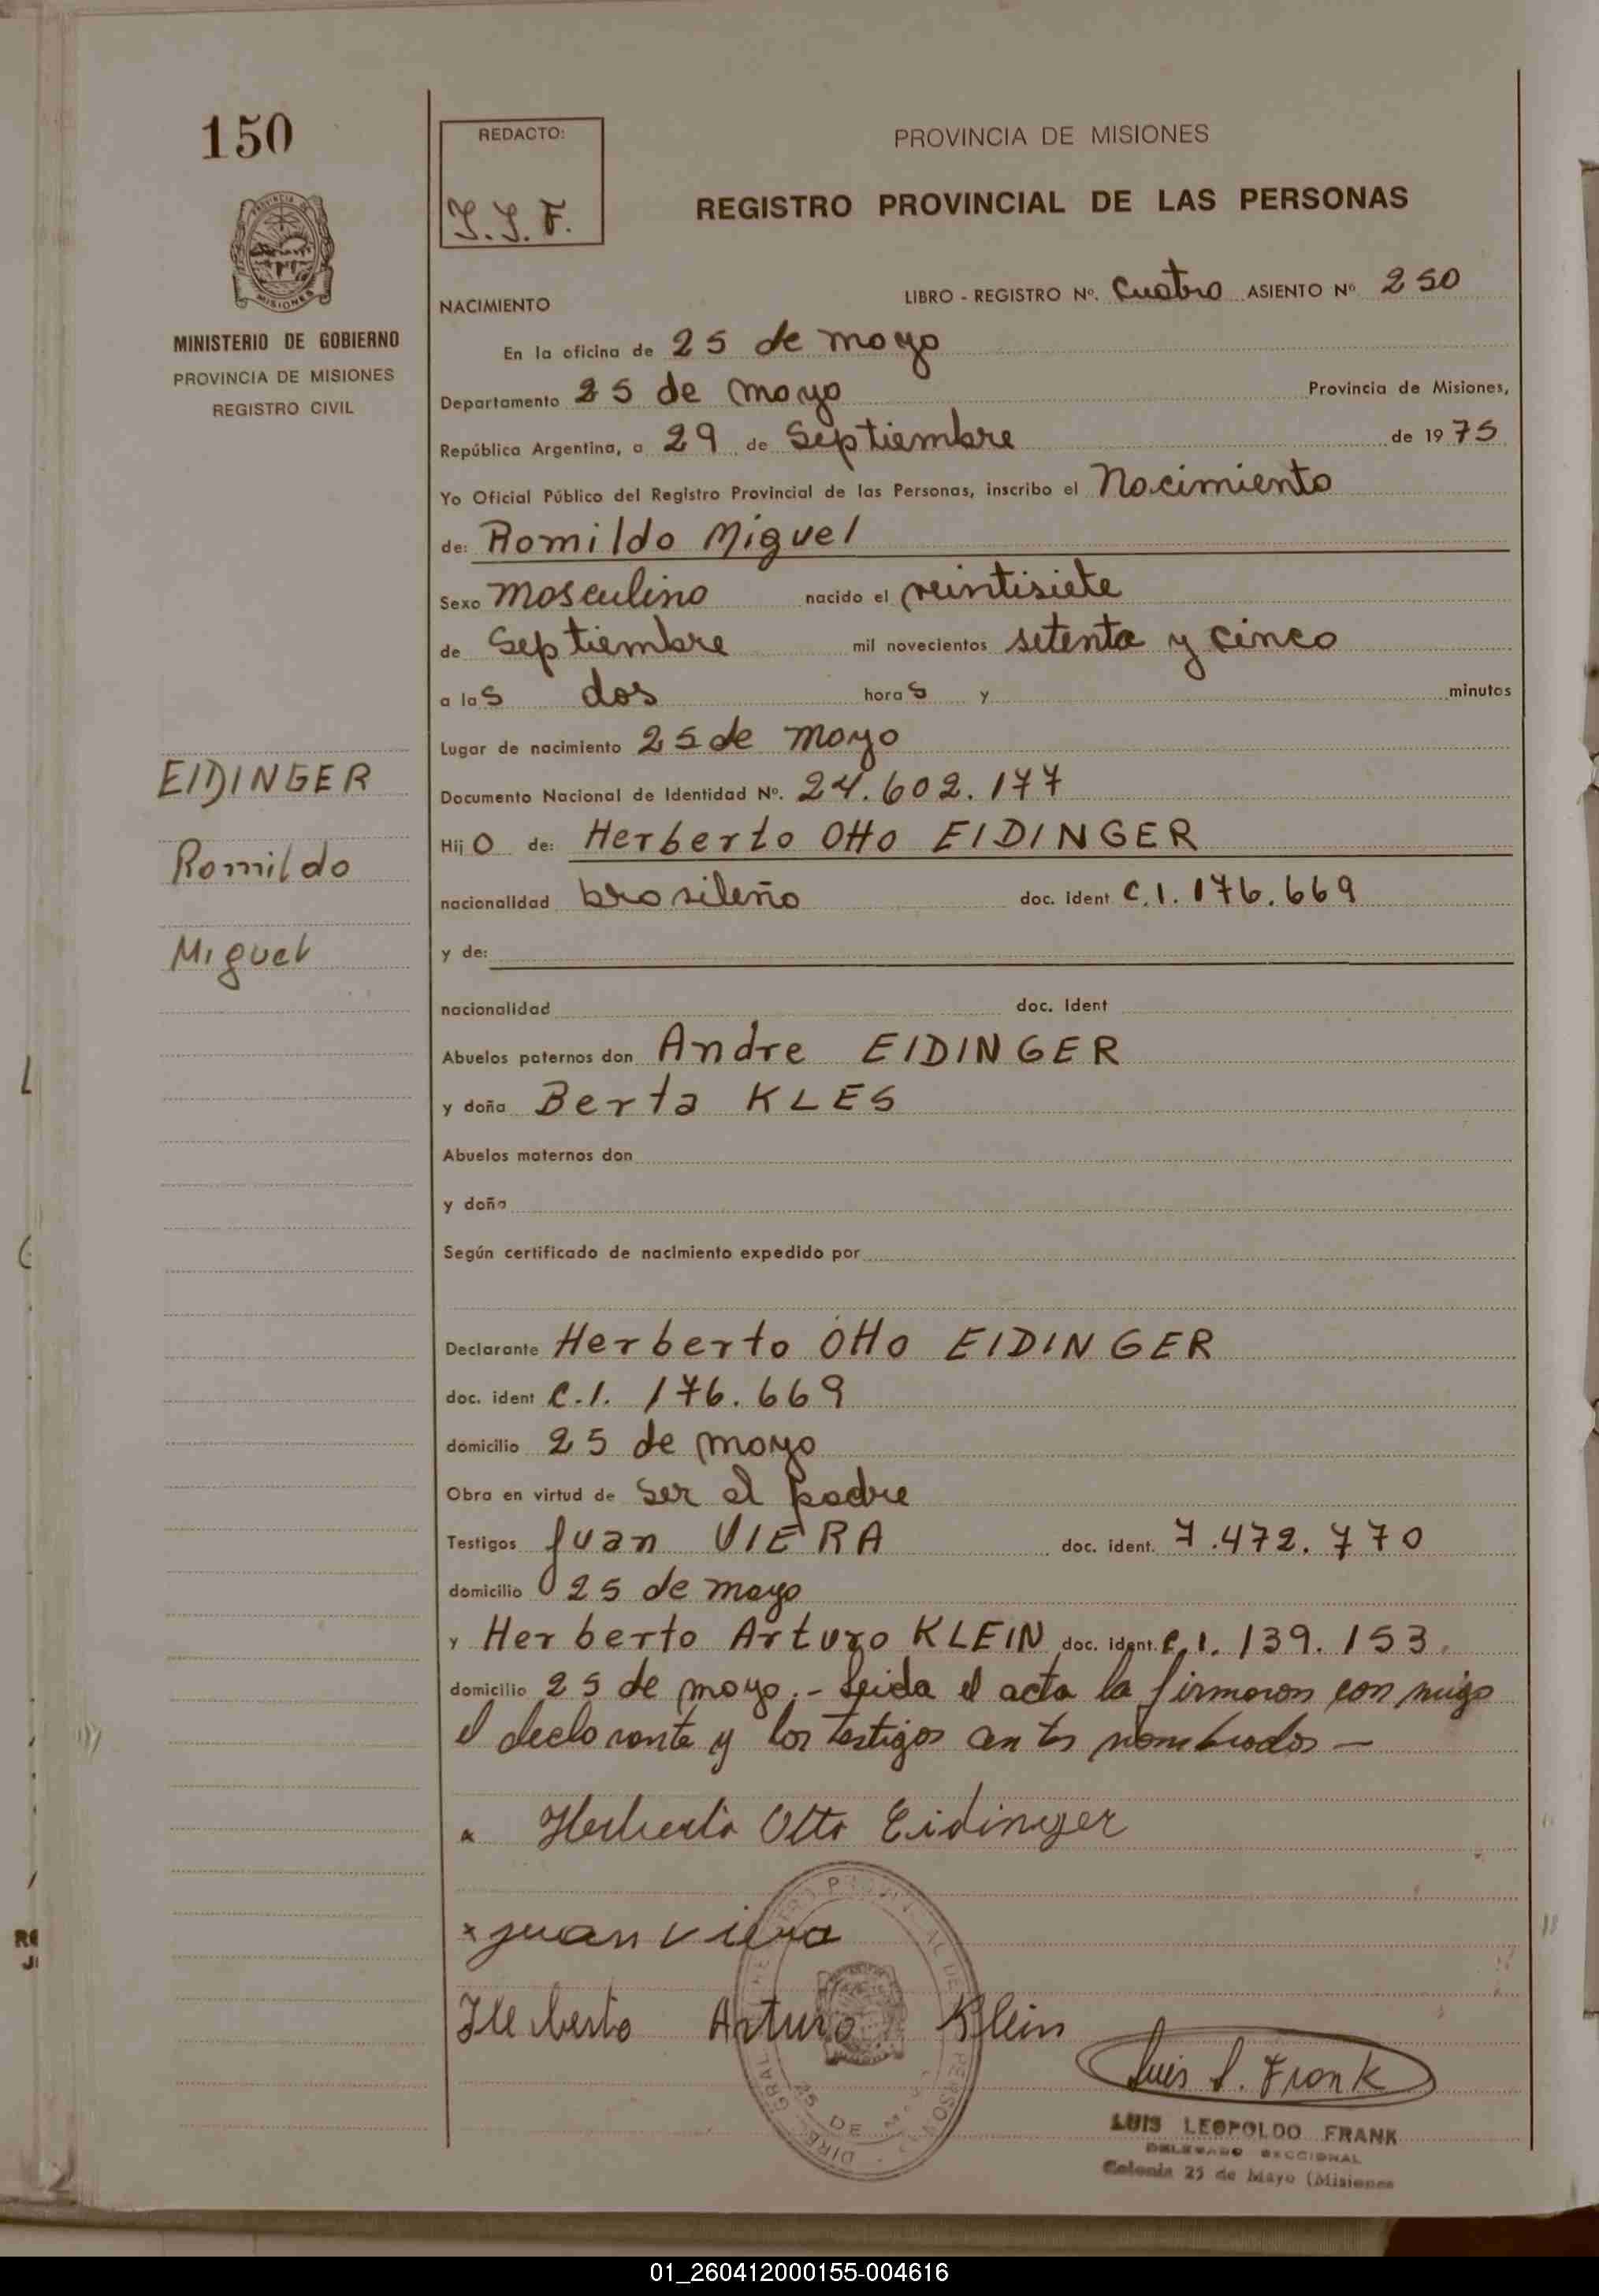 150
REDACTO:
PROVINCIA DE MISIONES
REGISTRO PROVINCIAL DE LAS PERSONAS
MISIONES
MINISTERIO DE GOBIERNO
PROVINCIA DE MISIONES
REGISTRO CIVIL
NACIMIENTO
LIBRO - REGISTRO Nº. Cuatro ASIENTO Nº 250
En la oficina de 25 de mayo
Departamento 25 de mayo Provincia de Misiones,
República Argentina, a 29 de Septiembre de 1975
Yo Oficial Público del Registro Provincial de las Personas, inscribo el Nacimiento
de: Romildo Miguel
Sexo masculino nacido el veintisiete
de Septiembre mil novecientos setenta y cinco
a las dos horas y minutos
Lugar de nacimiento 25 de mayo
Documento Nacional de Identidad Nº. 24.602.177
Hijo de: Herberto Otto EIDINGER
nacionalidad brasileño doc. ident C.I. 176.669
y de:
nacionalidad doc. ident
Abuelos paternos don Andre EIDINGER
y doña Berta KLES
Abuelos maternos don
y doña
Según certificado de nacimiento expedido por
Declarante Herberto Otto EIDINGER
doc. ident C.I. 176.669
domicilio 25 de mayo
Obra en virtud de ser el padre
Testigos Juan VIERA doc. ident. 7.472.770
domicilio 25 de mayo
y Herberto Arturo KLEIN doc. ident. C.I. 139.153.
domicilio 25 de mayo.- Leida el acta la firmaron con migo
el declarante y los testigos antes nombrados —
EIDINGER
Romildo
Miguel
x Herberto Otto Eidinger
x juan viera
Herberto Arturo Klein
Luis L. Frank
LUIS LEOPOLDO FRANK
DELEGADO SECCIONAL
Colonia 25 de Mayo (Misiones
01_260412000155-004616